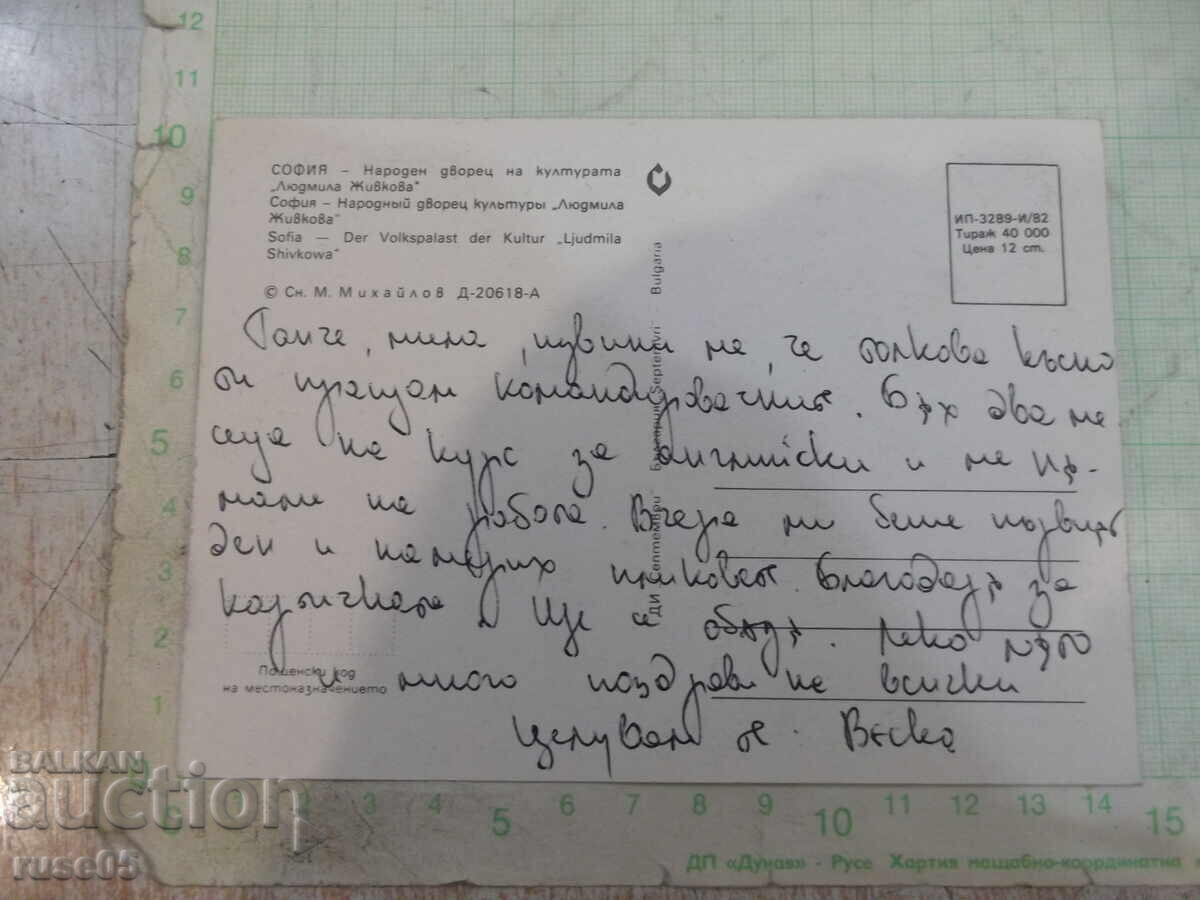 СОФИЯ – Народен дворец на културата
„Людмила Живкова"
София – Народный дворец культуры „Людмила
Живкова"
Sofia — Der Volkspalast der Kultur „Ljudmila
Shivkowa"
© Сн. М. Михайлов Д-20618-А
ИП-3289-И/82
Тираж 40 000
Цена 12 ст.
ДИ Септември Septemvri Bulgaria
мила, извини ме, че толкова късно
ти пращам командировачните. Бях два ме-
сеца на курс за английски и ме ня-
маше на работа. Вчера ми беше първият
ден и намерих пликовете. Благодаря за
картичката. Ще се обадя. Леко лято
и много поздрави на всички
Целувам те. Веска
Пощенски код
на местоназначението
12
11
10
9
8
7
6
5
4
3
2
1
1 2 3 4 5 6 7 8 9 10 11 12 13 14 15
ДП «Дунав» - Русе Хартия мащабно-координатна
BALKAN
auction
ruse05